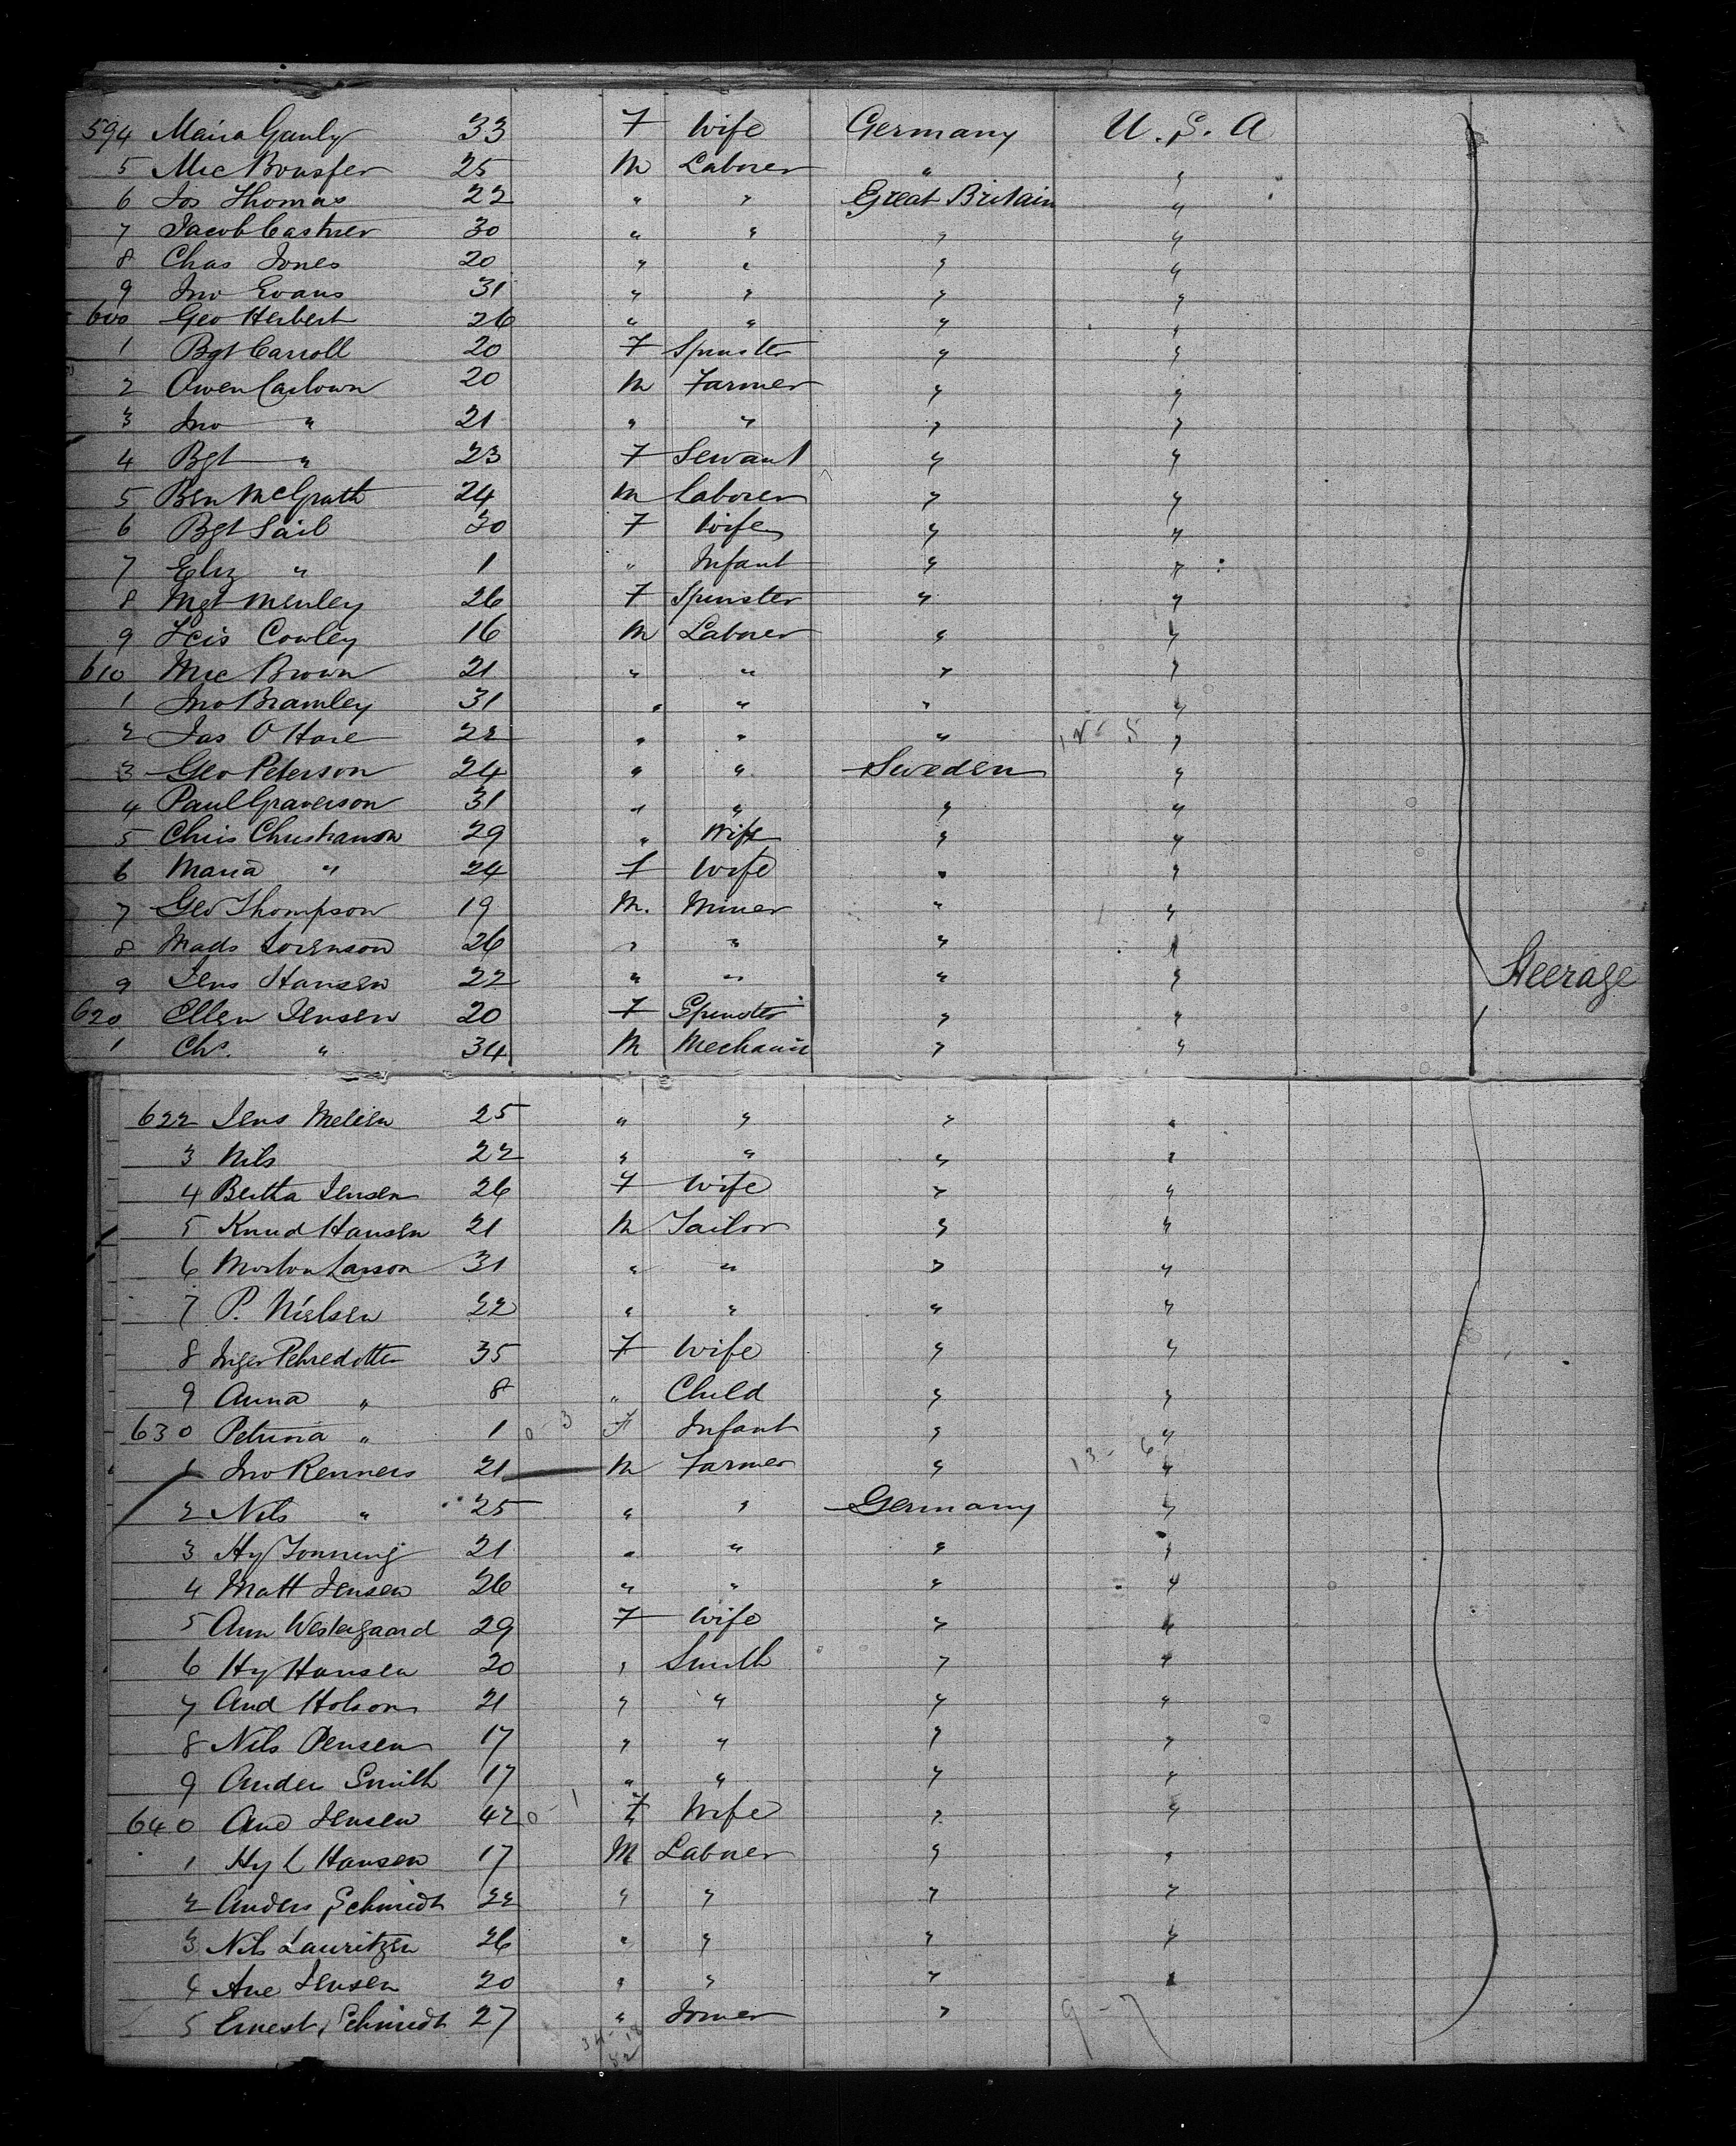 594 Maria Gauly 33 F Wife Germany U.S.A
5 Mic Bousfer 25 M Laborer " "
6 Jos Thomas 22 " " Great Britain "
7 Jacob Castner 30 " " " "
8 Chas Jones 20 " " " "
9 Jno Evans 31 " " " "
600 Geo Herbert 26 " " " "
1 Bgt Carroll 20 F Spinster " "
2 Owen Carlown 20 M Farmer " "
3 Jno " 21 " " " "
4 Bgt " 23 F Servant " "
5 Ben McGrath 24 M Laborer " "
6 Bgt Sail 30 F Wife " "
7 Eliz " 1 " Infant " "
8 Mgt Menley 26 F Spinster " "
9 Fcis Cowley 16 M Laborer " "
610 Mic Brown 21 " " " "
1 Jno Bramley 31 " " " "
2 Jas O'Hare 22 " " " "
3 Geo Peterson 24 " " Sweden "
4 Paul Graverson 31 " " " "
5 Chris Christianson 29 " Wife " "
6 Maria " 24 F Wife " "
7 Geo Thompson 19 M. Miner " "
8 Mads Sorenson 26 " " " "
9 Jens Hansen 22 " " " " Steerage
620 Ellen Jensen 20 F Spinster " "
1 Chs. " 34 M Mechanic " "
622 Jens Melien 25 " " " "
3 Nils 22 " " " "
4 Bertha Jensen 26 F Wife " "
5 Knud Hansen 21 M Tailor " "
6 Morton Larson 31 " " " "
7 P. Nielsen 22 " " " "
8 Inger Pehredotter 35 F Wife " "
9 Anna " 8 " Child " "
630 Petrina " 1 0-3 F Infant " "
1 Jno Renners 21 M Farmer " 13-6 "
2 Nils " 25 " " Germany "
3 Hy Tonning 21 " " " "
4 Matt Jensen 26 " " " "
5 Ann Westergaard 29 F Wife " "
6 Hy Hansen 20 " Smith " "
7 And Holson 21 " " " "
8 Nils Pensen 17 " " " "
9 Anders Smith 17 " " " "
640 Ane Jensen 42 0-1 F Wife " "
1 Hy L Hansen 17 M Laborer " "
2 Anders Schmidt 22 " " " "
3 Nils Lauritzen 26 " " " "
4 Ane Jensen 20 " " " "
5 Ernest Schmidt 27 " Joiner " 9-7